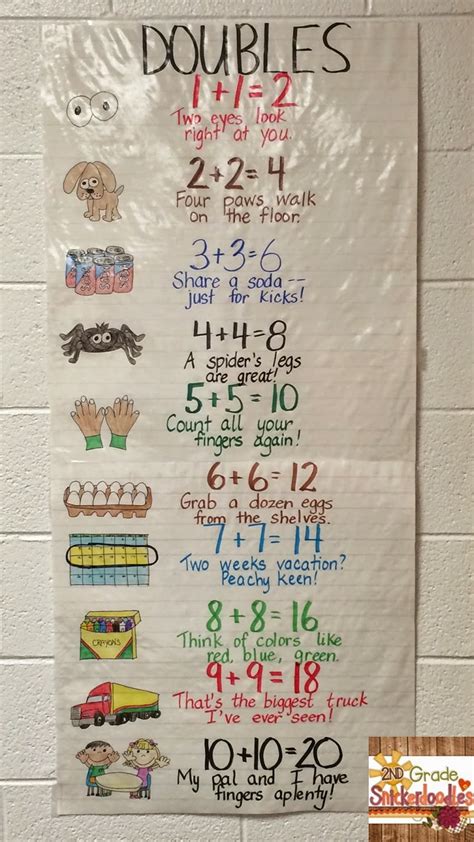 DOUBLES
1+1=2
Two eyes look
right at you.
2+2=4
Four paws walk
on the floor.
3+3=6
Share a soda --
just for kicks!
4+4=8
A spider's legs
are great!
5+5=10
Count all your
fingers again!
6+6=12
Grab a dozen eggs
from the shelves.
7+7=14
Two weeks vacation?
Peachy keen!
8+8=16
Think of colors like
red, blue, green.
CRAYONS
9+9=18
That's the biggest truck
I've ever seen!
10+10=20
My pal and I have
fingers aplenty!
2ND Grade
Snickerdoodles